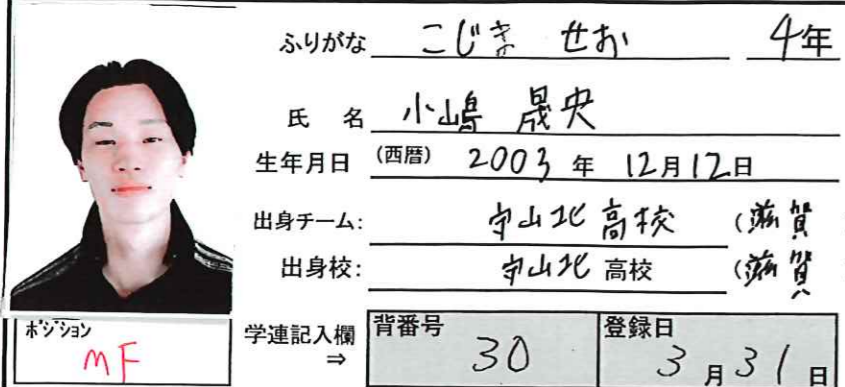 ふりがな こじま せお 4年
氏 名 小嶋 晟央
生年月日 (西暦) 2003 年 12月12日
出身チーム: 守山北 高校 (滋賀
出身校: 守山北 高校 (滋賀
ポジション
MF
学連記入欄
⇒
背番号
30
登録日
3 月 31 日